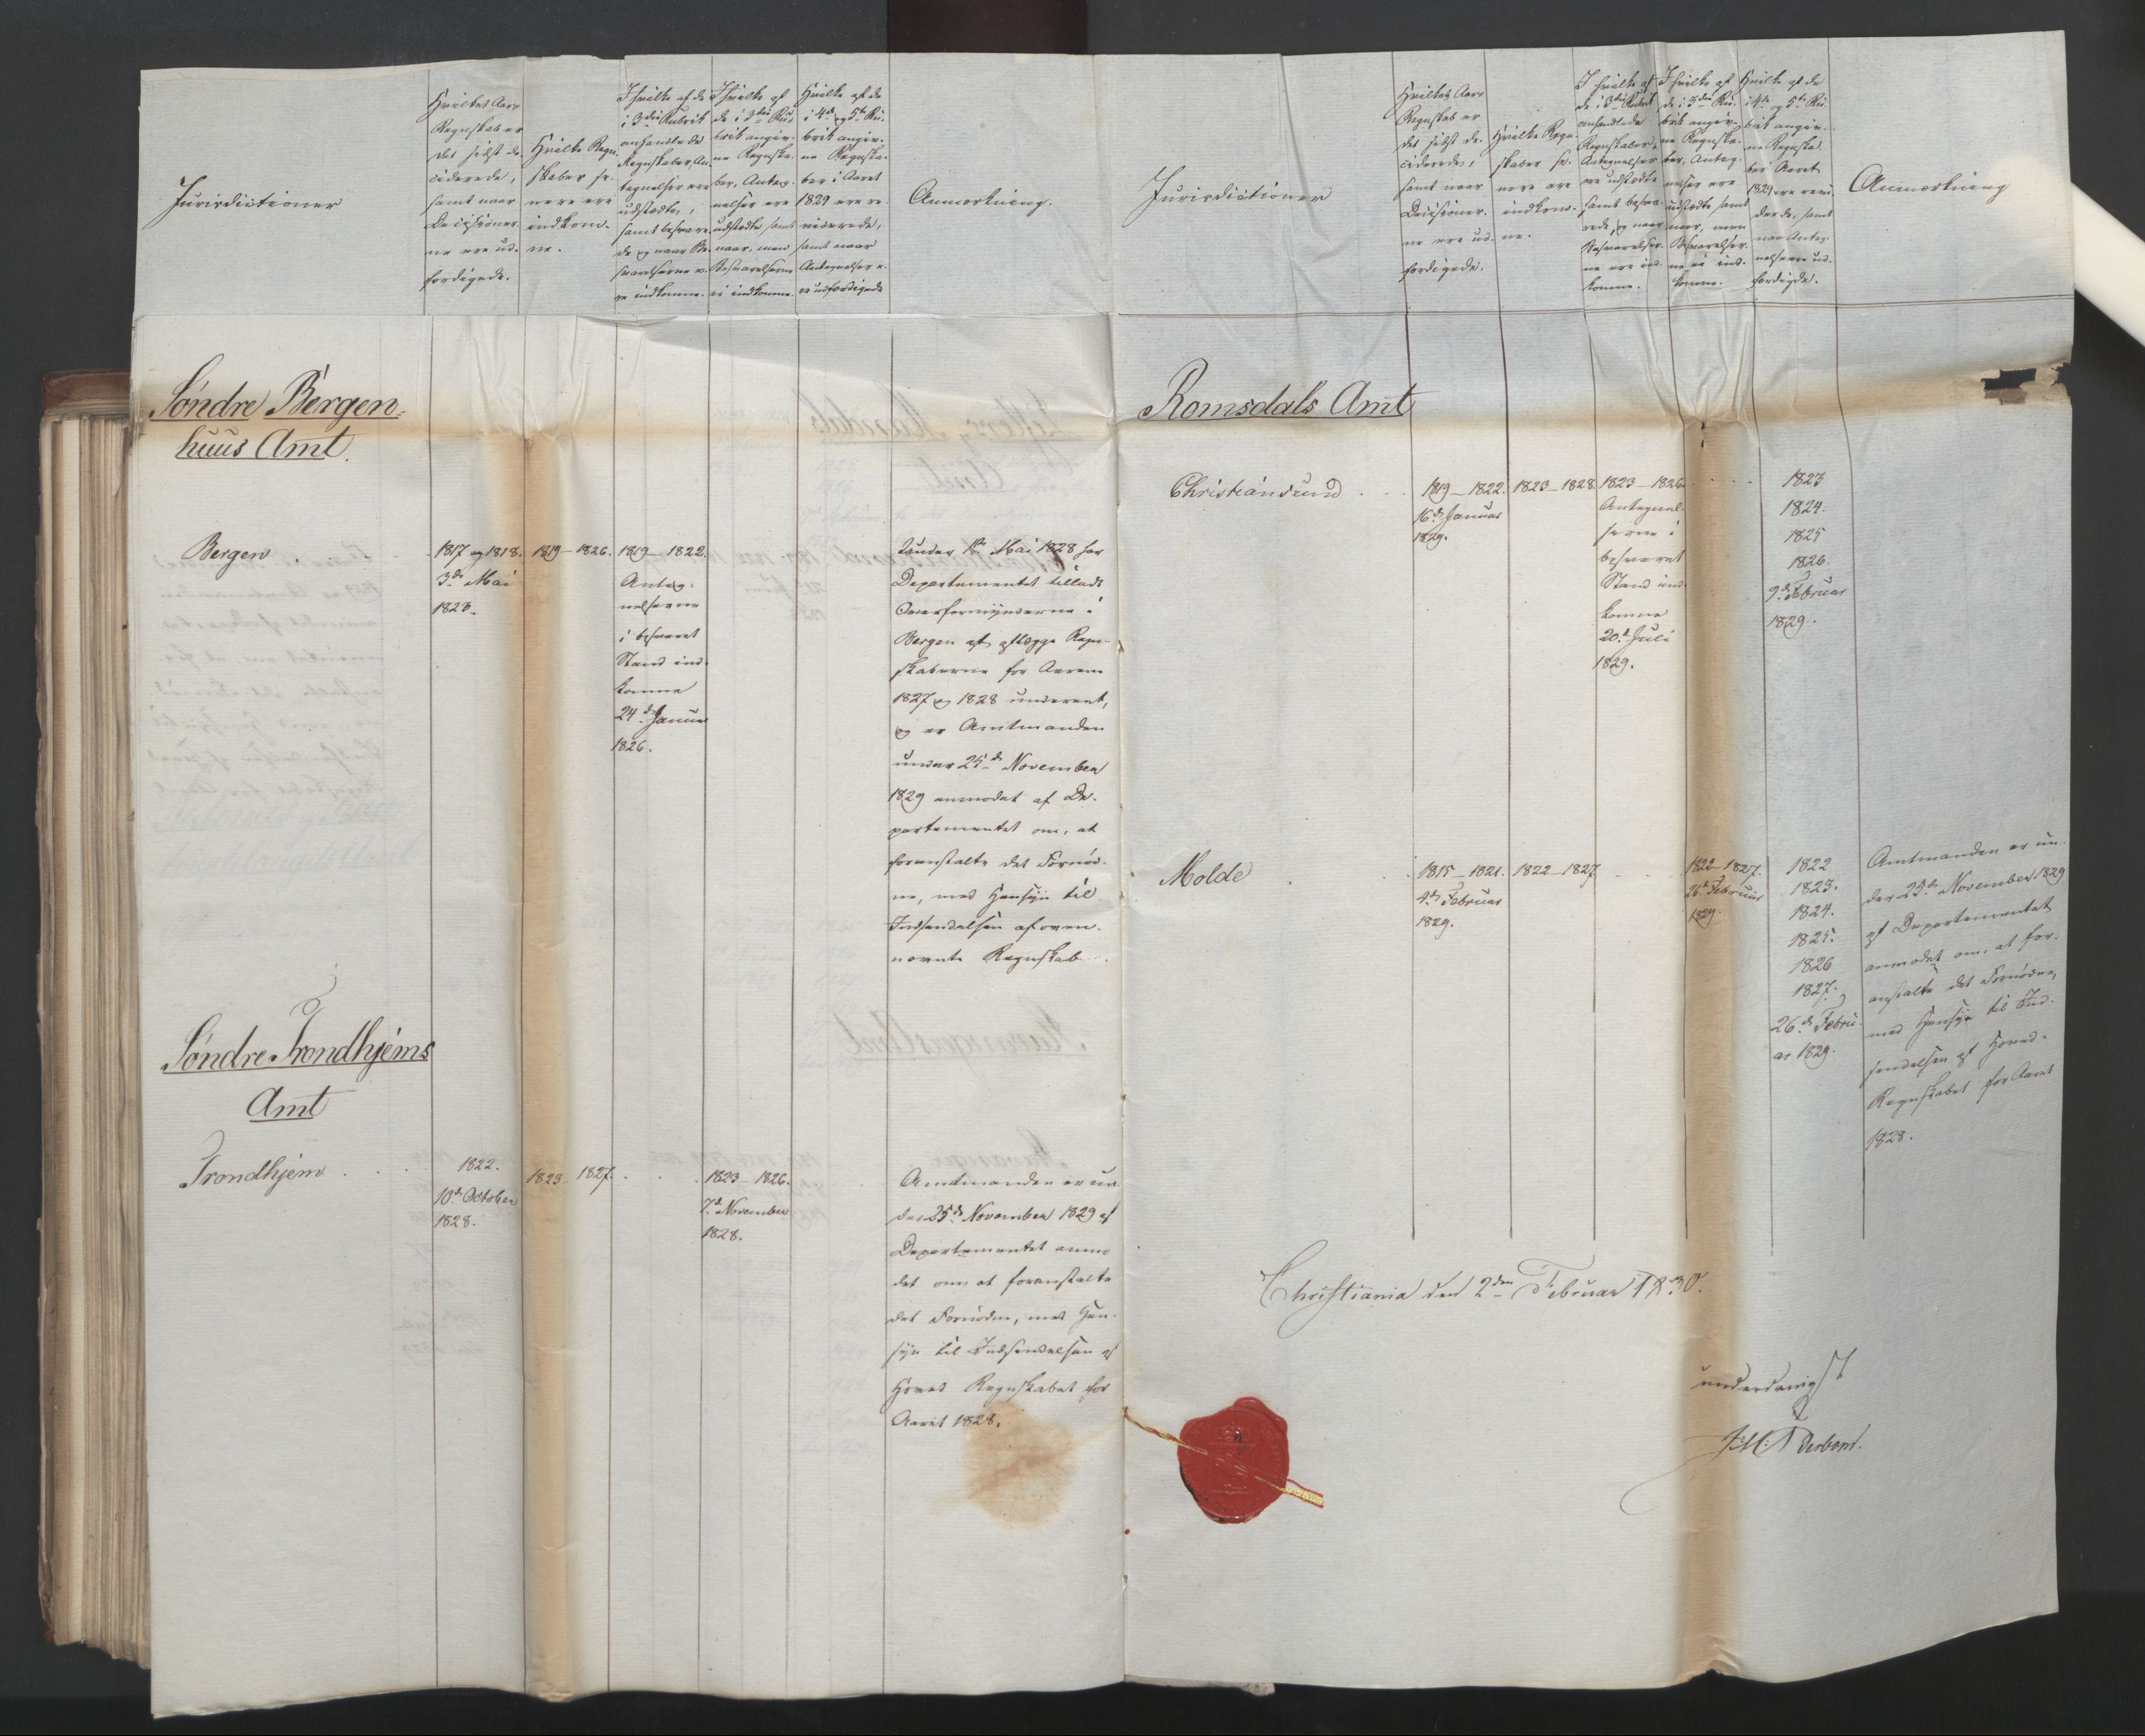 Jurisdictioner
Hvilket Aars
Regnskab er
det sidst de-
ciderede,
samt naar
Decisioner-
ne ere ud-
færdigede.
Hvilke Regn-
skaber se-
nere ere
indkom-
ne.
I hvilke af de
i 3die Rubrik
anhandlede
Regnskaber, An-
tegnelser ere
udstedte,
samt besvare-
de og naar Be-
svarelserne e-
re indkomne.
I hvilke af
de i 3die Ru-
brik angiv-
ne Regnska-
ber, Anteg-
nelser ere
udstedte samt
naar, men
Besvarelserne
ei indkomne.
Hvilke af de
i 4de og 5te Ru-
brik angiv-
ne Regnska-
ber i Aaret
1829 ere re-
viderede,
samt naar
Antegnelser e-
re udfærdigede
Anmærkning.
Søndre Bergen-
huus Amt.
Bergen .
1817 og 1818.
3de Mai
1823.
1819-1826.
1819-1822.
Anteg-
nelserne
i besvaret
Stand ind-
komne
24de Januar
1826.
Under 1ste Mai 1828 har
Departementet tilladt
Overformynderne i
Bergen at aflægge Regn-
skaberne for Aarene
1827 og 1828 underent,
og er Amtmanden
under 25de November
1829 anmodet af De-
partementet om, at
foranstalte det Fornød-
ne, med Hensyn til
Indsendelsen af oven-
nævnte Regnskab.
Søndre Trondhjems
Amt
Trondhjem . . . .
1822.
10de October
1828.
1823-1827.
1823-1826.
7de November
1828.
Amtmanden er un-
der 25de November 1829 af
Departementet anmo-
det om at foranstalte
det Fornødne, med Hen-
syn til Indsendelsen af
Hoved Regnskabet for
Aaret 1828.
Jurisdictioner
Hvilket Aars
Regnskab er
det sidst de-
ciderede,
samt naar
Decisioner-
ne ere ud-
færdigede.
Hvilke Regn-
skaber se-
nere ere
indkom-
ne.
I hvilke af
de i 3die Rubrik
anhandlede
Regnskaber,
Antegnelser
ere udstedte
samt besva-
rede, og naar
Besvarelser-
ne ere ind-
komne.
I hvilke af
de i 3die Ru-
brik angiv-
ne Regnska-
ber, Anteg-
nelser ere
udstedte samt
naar, men
Besvarelser-
ne ei ind-
komne.
Hvilke af de
i 4de og 5te Ru-
brik angiv-
ne Regnska-
ber i Aaret
1829 ere revi-
derede, samt
naar Anteg-
nelserne ud-
færdigede.
Anmærkning
Romsdals Amt
Christiansund . . .
1819-1822.
16de Januar
1829.
1823-1828.
1823-1826.
Antegnel-
serne i
besvaret
Stand ind-
komne
20de Juli
1829.
1823
1824.
1825
1826.
9de Februar
1829.
Molde
1815-1821.
4de Februar
1829.
1822-1827.
1822-1827.
26de Februar
1829.
1822
1823.
1824.
1825.
1826
1827.
26de Febru-
ar 1829.
Amtmanden er un-
der 25de November 1829
af Departementet
anmodet om, at for-
anstalte det Fornødne,
med Hensyn til Ind-
sendelsen af Hoved-
Regnskabet for Aaret
1828.
Christiania den 2den Februar 1830.
underdanigst